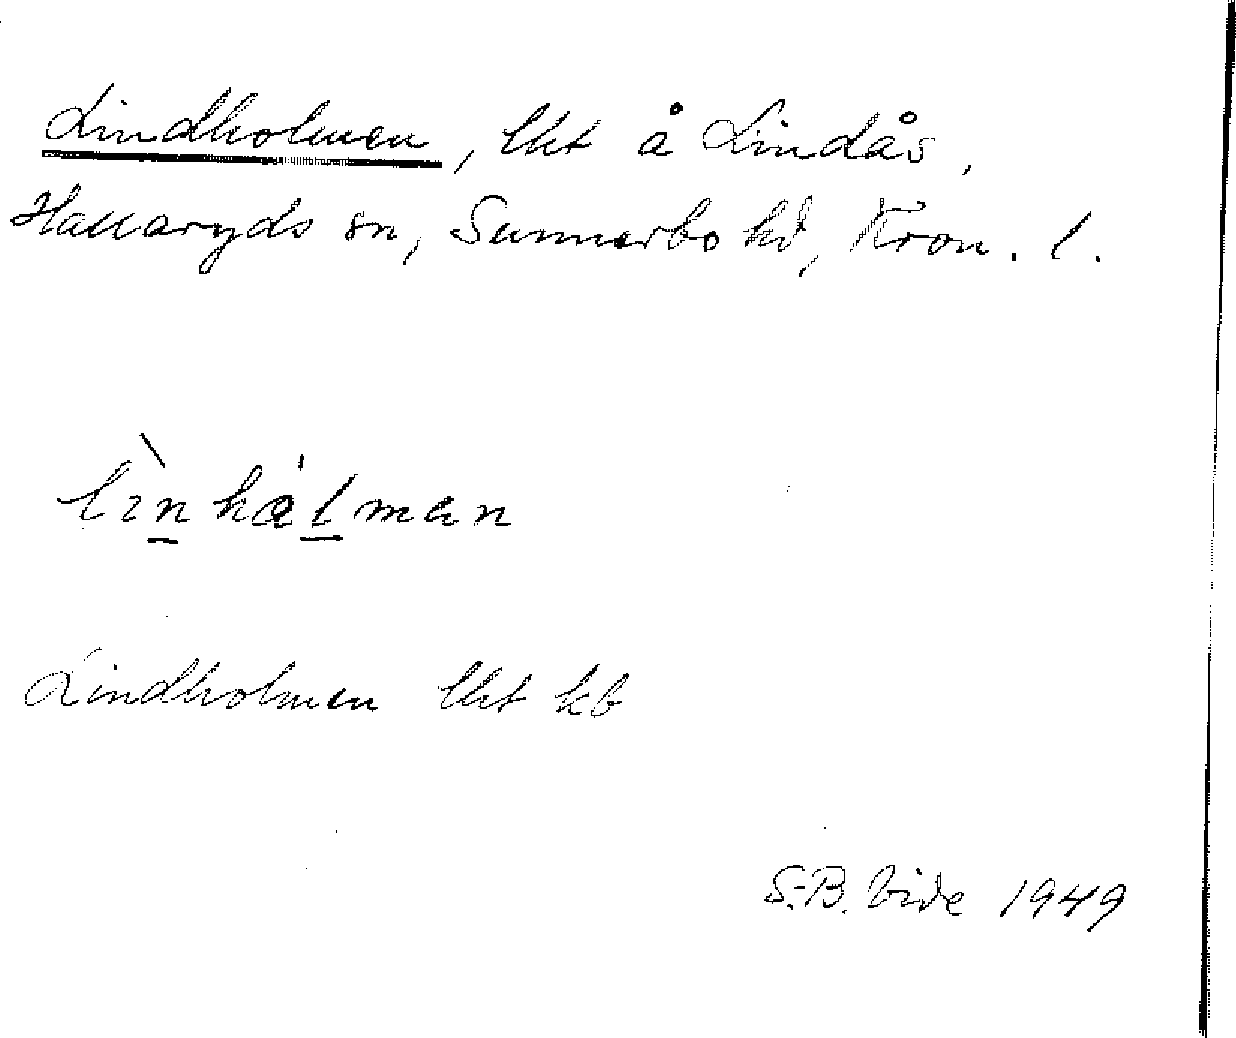 Lindholmen, lht å Lindås,
Hallaryds sn, Sunnerbo hd, Kron. l.
lìnhålman
Lindholmen lht kb
S.-B. Vide 1949